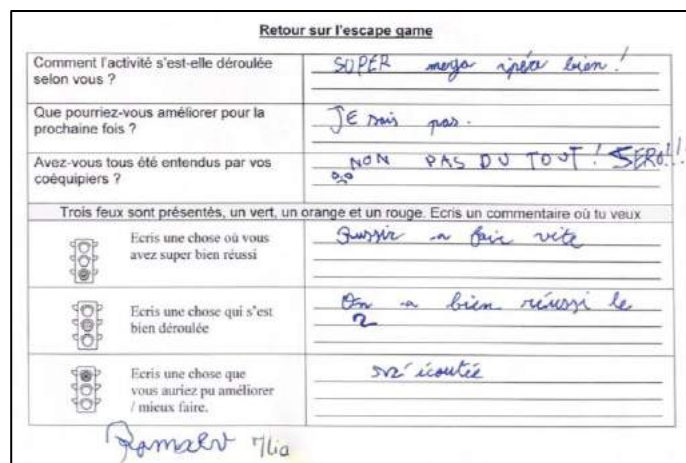 Retour sur l'escape game
Comment l'activité s'est-elle déroulée
selon vous ?
SUPER mega ipéer bien !
Que pourriez-vous améliorer pour la
prochaine fois ?
JE sais pas.
Avez-vous tous été entendus par vos
coéquipiers ?
NON PAS DU TOUT ! ZERO!!!
Trois feux sont présentés, un vert, un orange et un rouge. Ecris un commentaire où tu veux
Ecris une chose où vous
avez super bien réussi
a fair vite
Ecris une chose qui s'est
bien déroulée
On a bien réussi le
2
Ecris une chose que
vous auriez pu améliorer
/ mieux faire.
m'écoutée